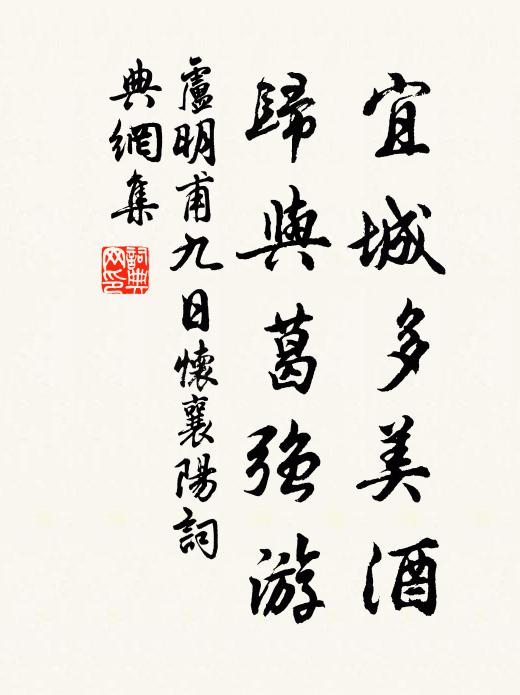 宜城多美酒
歸與葛強游
盧明甫九日懷襄陽詞
典網集
詞典網印